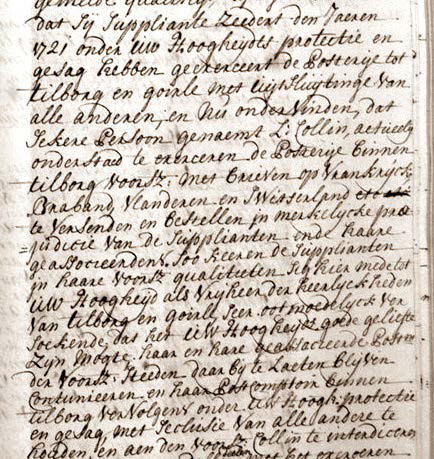 gemelde qualiteyt,
dat sij Supplianten zeedert den Jaeren
1721 onder UW Hoogheydts protectie en
gesag hebben geexerceert de Posterye tot
tilborg en goirle met uijtsluytinge van
alle anderen, en Nu ondervinden, dat
sekere Persoon genaemt L: Collin, actueelyk
onderstad te exerceren de Posterye binnen
tilborg voorsz: met Brieven op Vranckryck
Braband Vlanderen en Swisserland
te versenden en bestellen in merkelycke præ
judicie van de Supplianten ende haare
geassocieerden, Soo keeren de Supplianten
in haare voorsz qualiteeten sig hier mede tot
UW Hoogheyd als Vryheer der heerlyckheden
van tilborg en goirle seer ootmoedelyck ver
soekende, dat het UW Hoogheydts goede geliefte
zyn mogte, haar en hare geassocieerde Postm
der voorsz: Steeden daar by te Laeten blyven
Continueeren en haar Postcomptoir binnen
tilborg vervolgens onder UW Hoogh: protectie
en gesag, met seclusie van alle andere te
houden, en aen den voorsz Collin te interdiceren
het exerceren